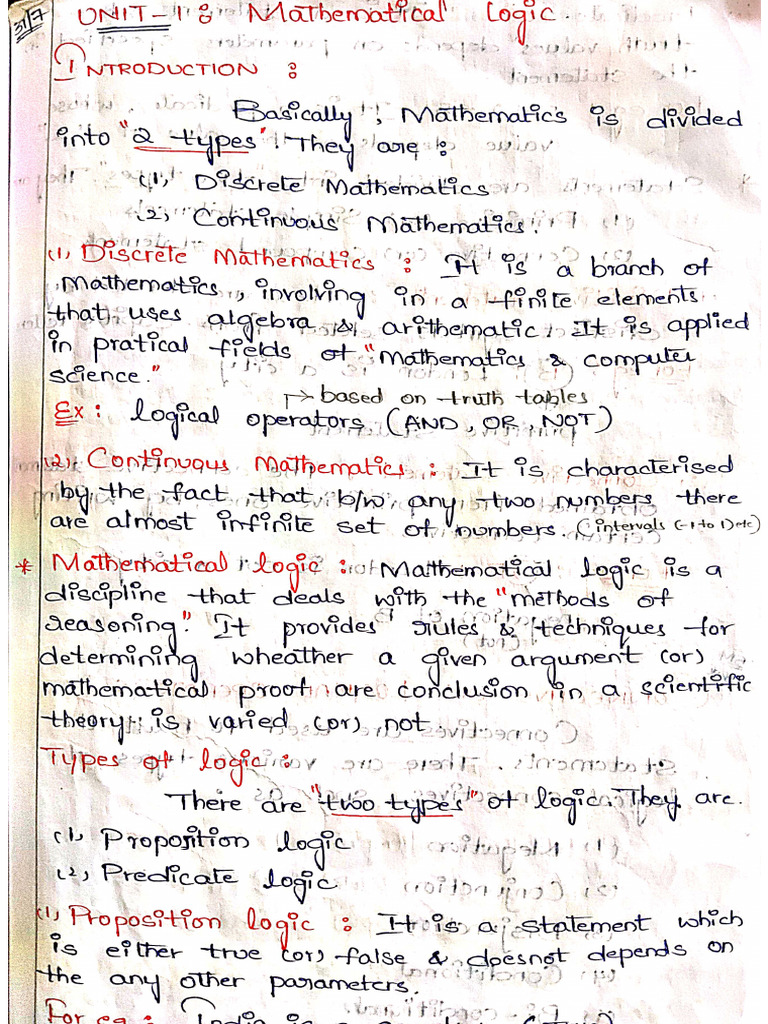 31/7
UNIT-1 : Mathematical Logic.
INTRODUCTION :
Basically, Mathematics is divided
into "2 types". They are :
(1) Discrete Mathematics
(2) Continuous Mathematics.
(1) Discrete Mathematics : It is a branch of
Mathematics, involving in a finite elements
that uses algebra & arithematic. It is applied
in pratical fields of "Mathematics & computer
science."
→ based on truth tables
Ex : logical operators (AND, OR, NOT)
(2) Continuous Mathematics : It is characterised
by the fact that b/w any two numbers there
are almost infinite set of numbers. (intervals (-1 to 1) etc)
* Mathematical logic : Mathematical logic is a
discipline that deals with the "methods of
reasoning". It provides rules & techniques for
determining wheather a given argument (or)
mathematical proof are conclusion in a scientific
theory is varied (or) not.
Types of logic :
There are "two types" of logic. They are.
(1) Proposition logic
(2) Predicate logic
(1) Proposition logic : It is a statement which
is either true (or) false & doesnot depends on
the any other parameters.
For eg : India is a